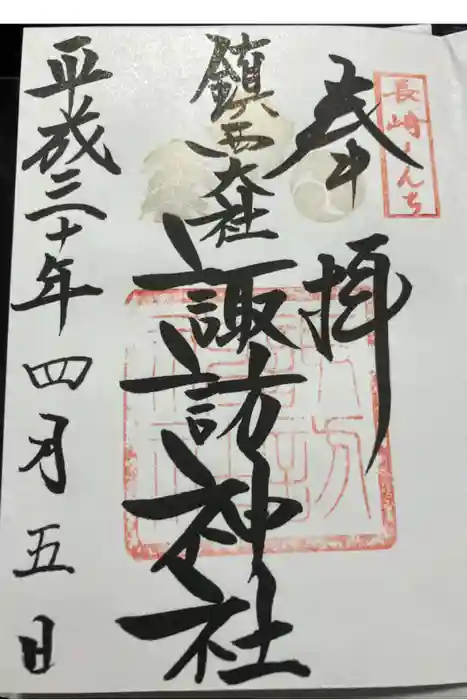 長崎くんち
奉拝
鎮西大社
諏訪神社
平成三十年四月五日